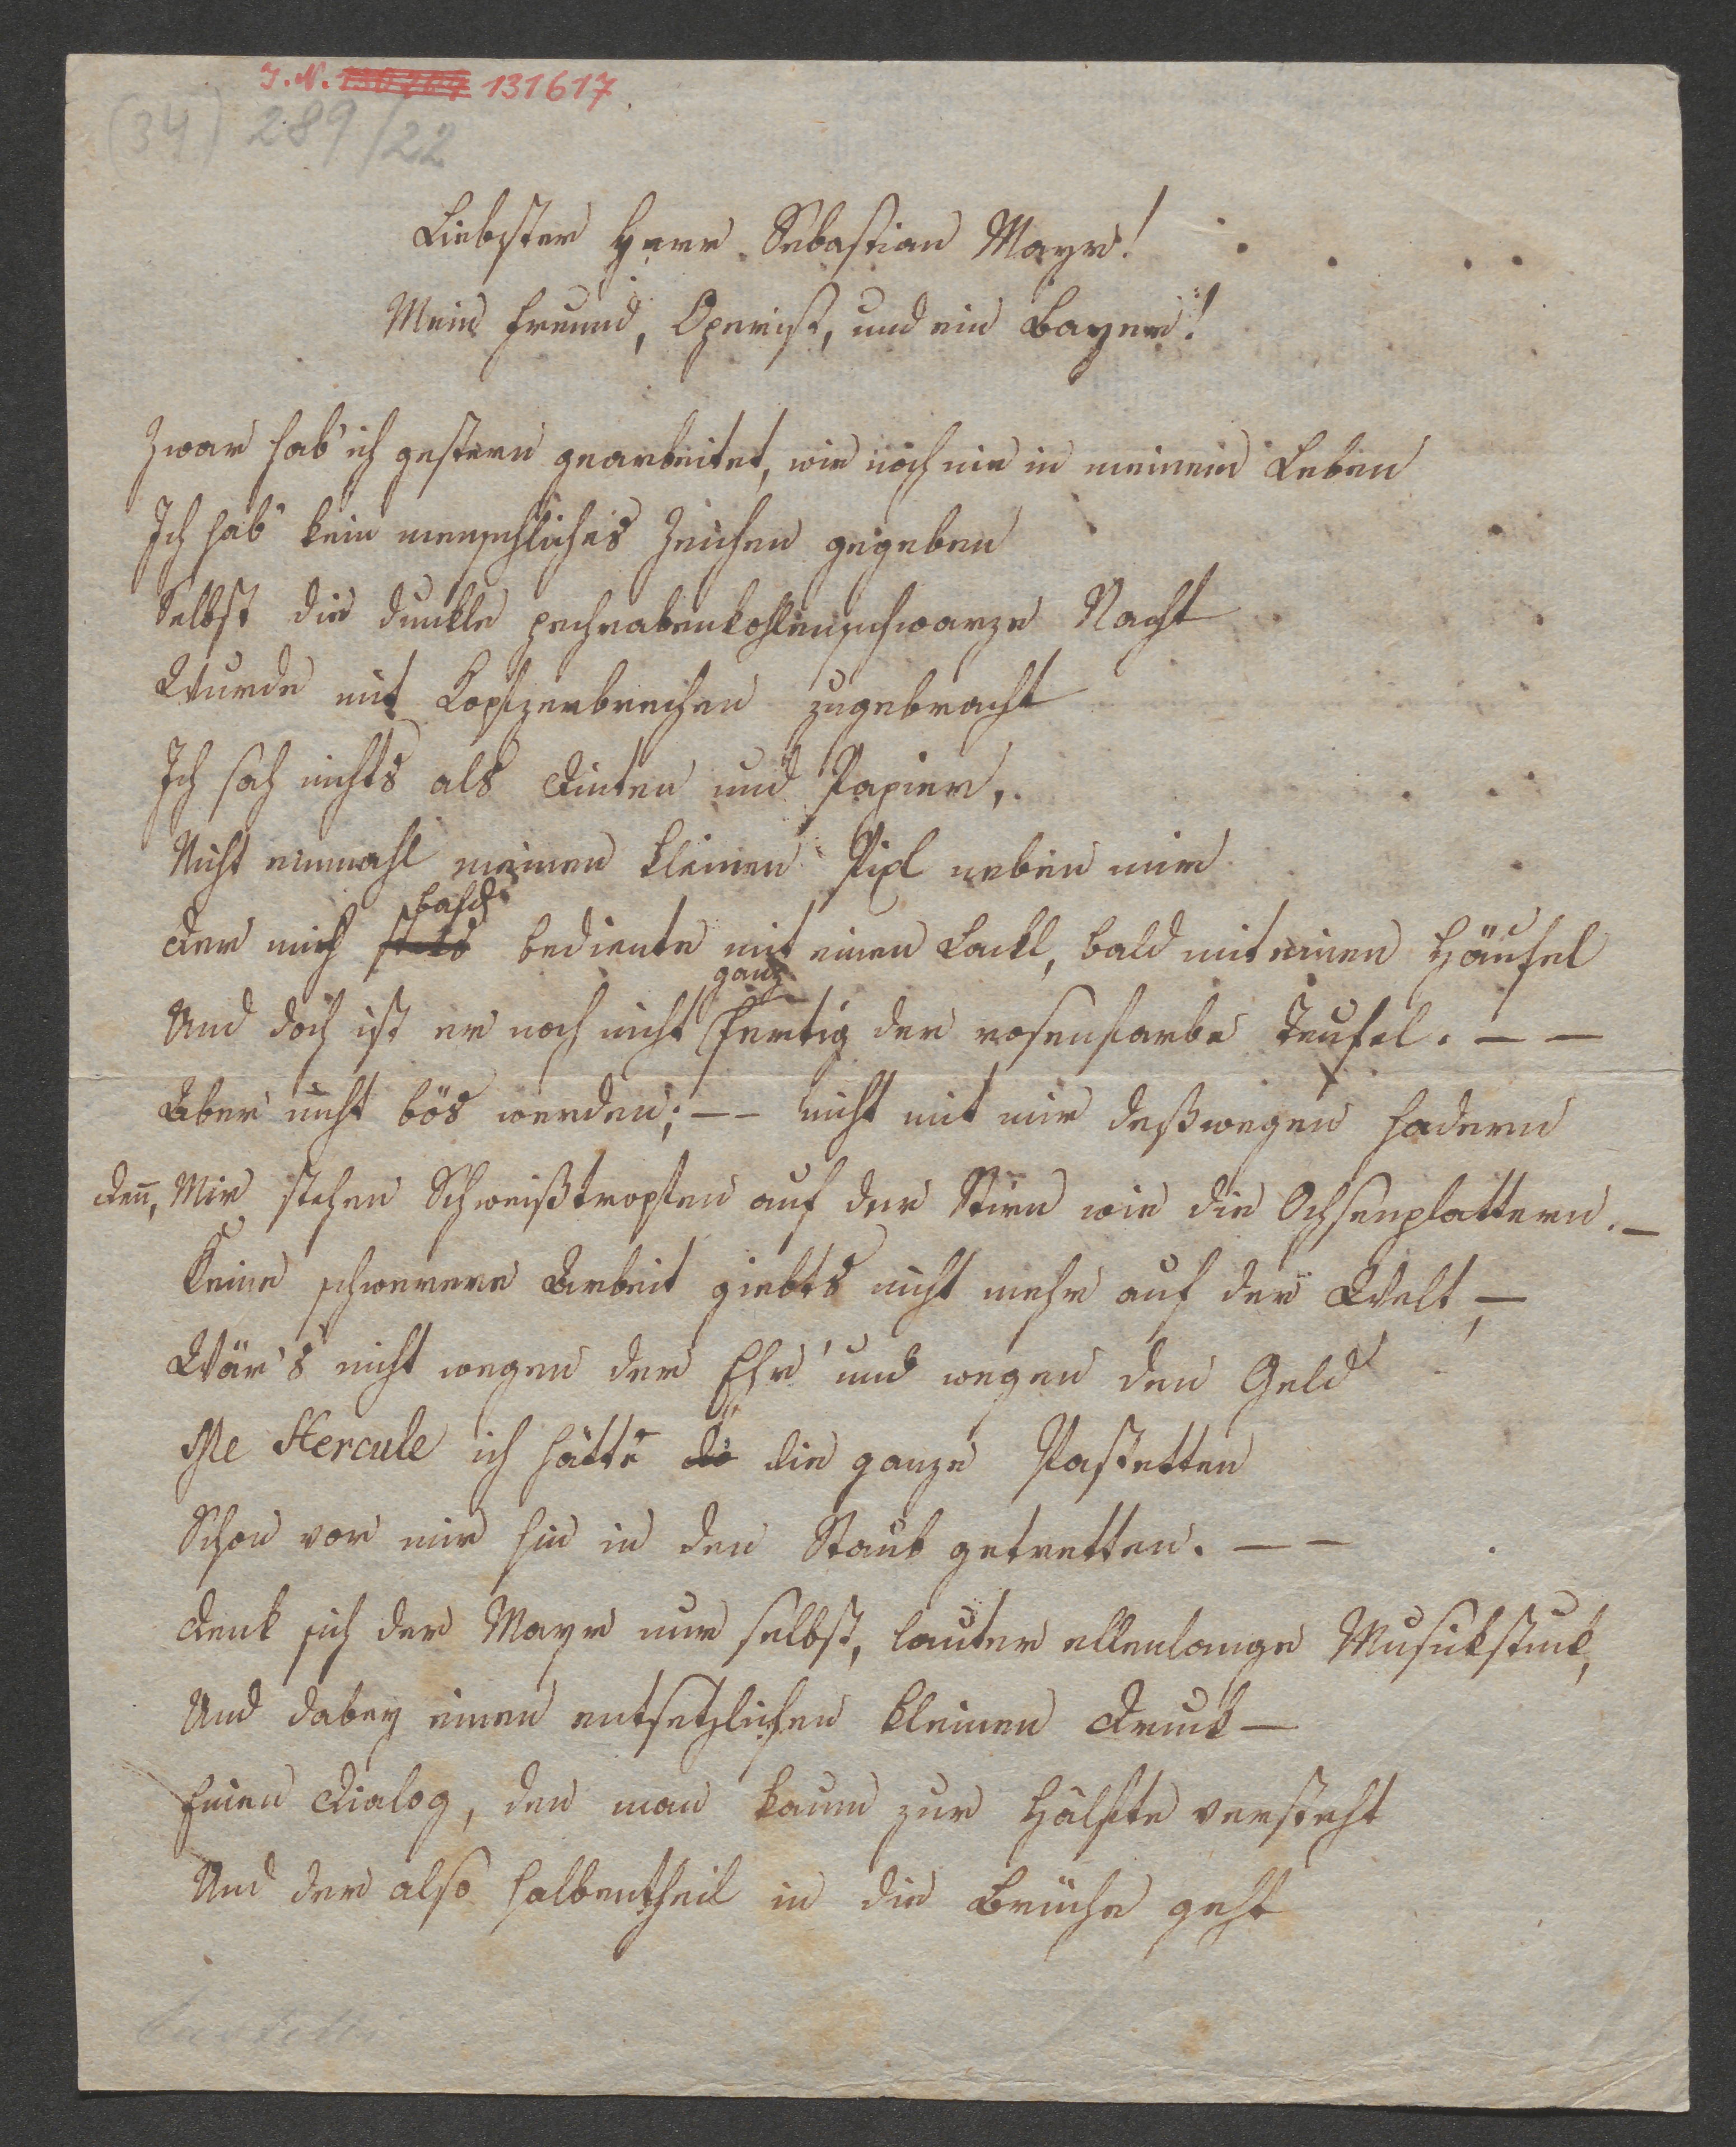 I. N. 131617
(34) 289/22
Liebster Herr Sebastian Mayr!
Mein Freund, Operist, und ein Bayer!
Zwar hab' ich gestern gearbeitet, wie noch nie in meinem Leben
Ich hab' kein menschliches Zeichen gegeben
Selbst die dunkle pechrabenkohlenschwarze Nacht
Wurde mit Kopfzerbrechen zugebracht
Ich sah nichts als Dinten und Papier,
Nicht einmahl meinen kleinen Pixl neben mir
Der mich stets bald bediente mit einen Lackl, bald mit einen Häufel
Und doch ist er noch nicht ganz fertig der rosenfarbe Teufel. – –
Aber nicht bös werden; – – nicht mit mir deßwegen hadern
Den̄, Mir stehen Schweißtropfen auf der Stirn wie die Ochsenplattern. –
Keine schwerere Arbeit giebts nicht mehr auf der Welt, –
Wär's nicht wegen der Ehr' und wegen den Geld
Me Hercule ich hätte di die ganze Pastetten
Schon vor mir hin in den Staub getretten. – –
Denk sich der Mayr nur selbst, lauter ellenlange Musickstuck,
Und dabey einen entsetzlichen kleinen Druck –
Einen Dialog, den man kaum zur Hälfte versteht
Und der also halbentheil in die Brüche geht
Castelli